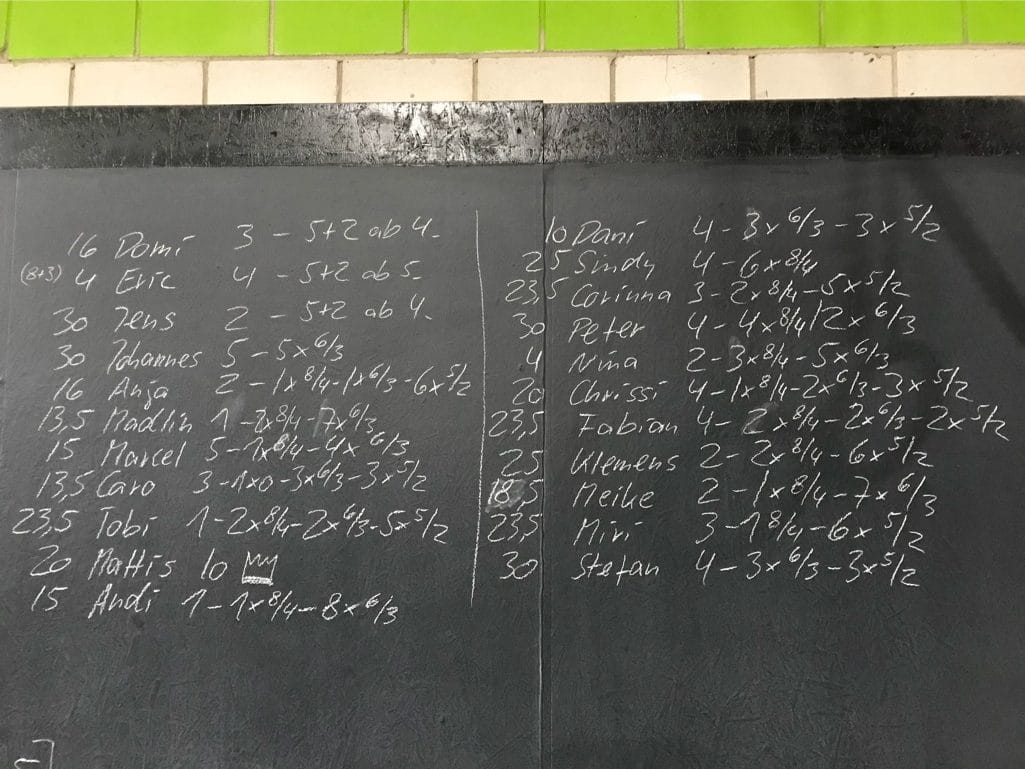 16 Domi 3 - 5+2 ab 4.
(8+3) 4 Eric 4 - 5+2 ab 5.
30 Jens 2 - 5+2 ab 4.
30 Johannes 5 - 5x6/3
16 Anja 2 - 1x8/4 - 1x6/3 - 6x5/2
13,5 Madlin 1 - 2x8/4 - 7x6/3
15 Marcel 5 - 1x8/4 - 4x6/3
13,5 Caro 3 - 1x0 - 3x6/3 - 3x5/2
23,5 Tobi 1 - 2x8/4 - 2x6/3 - 5x5/2
20 Mattis 10
15 Andi 1 - 1x8/4 - 8x6/3
10 Dani 4 - 3x6/3 - 3x5/2
25 Sindy 4 - 6x8/4
23,5 Corinna 3 - 2x8/4 - 5x5/2
30 Peter 4 - 4x8/4 / 2x6/3
4 Nina 2 - 3x8/4 - 5x6/3
20 Chrissi 4 - 1x8/4 - 2x6/3 - 3x5/2
23,5 Fabian 4 - 2x8/4 - 2x6/3 - 2x5/2
25 Klemens 2 - 2x8/4 - 6x5/2
18,5 Meike 2 - 1x8/4 - 7x6/3
23,5 Miri 3 - 1 8/4 - 6x5/2
30 Stefan 4 - 3x6/3 - 3x5/2